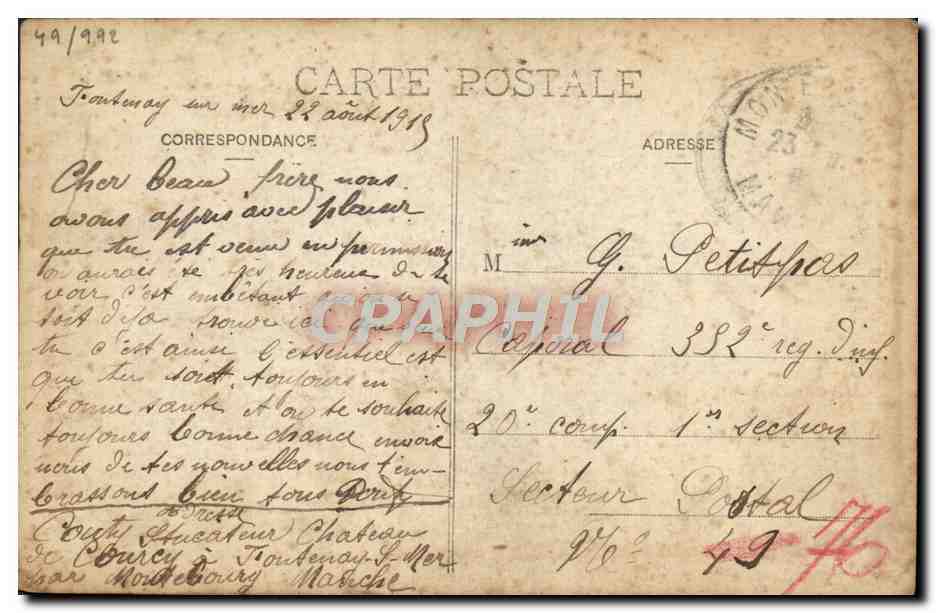 49/992
CARTE POSTALE
Fontenay sur mer 22 août 1915
CORRESPONDANCE
Cher beau frère nous
avons appris avec plaisir
que tu est venu en permission
on aurais été très heureux de te
voir c'est embêtant qu'on se
soit déjà trouvé ici que
tu c'est ainsi l'essentiel est
que tu soit toujours en
bonne santé et on te souhaite
toujours bonne chance envoie
nous de tes nouvelles nous t'em-
brassons bien tous
adresse
Stucateur Chateau
de Courcy à Fontenay-S-Mer
par Montebourg Manche
ADRESSE
MON
23
M G. Petitpas
Caporal 352e reg. d'inf.
20e comp. 1re section
Secteur Postal
No 49 76
CPAPHIL